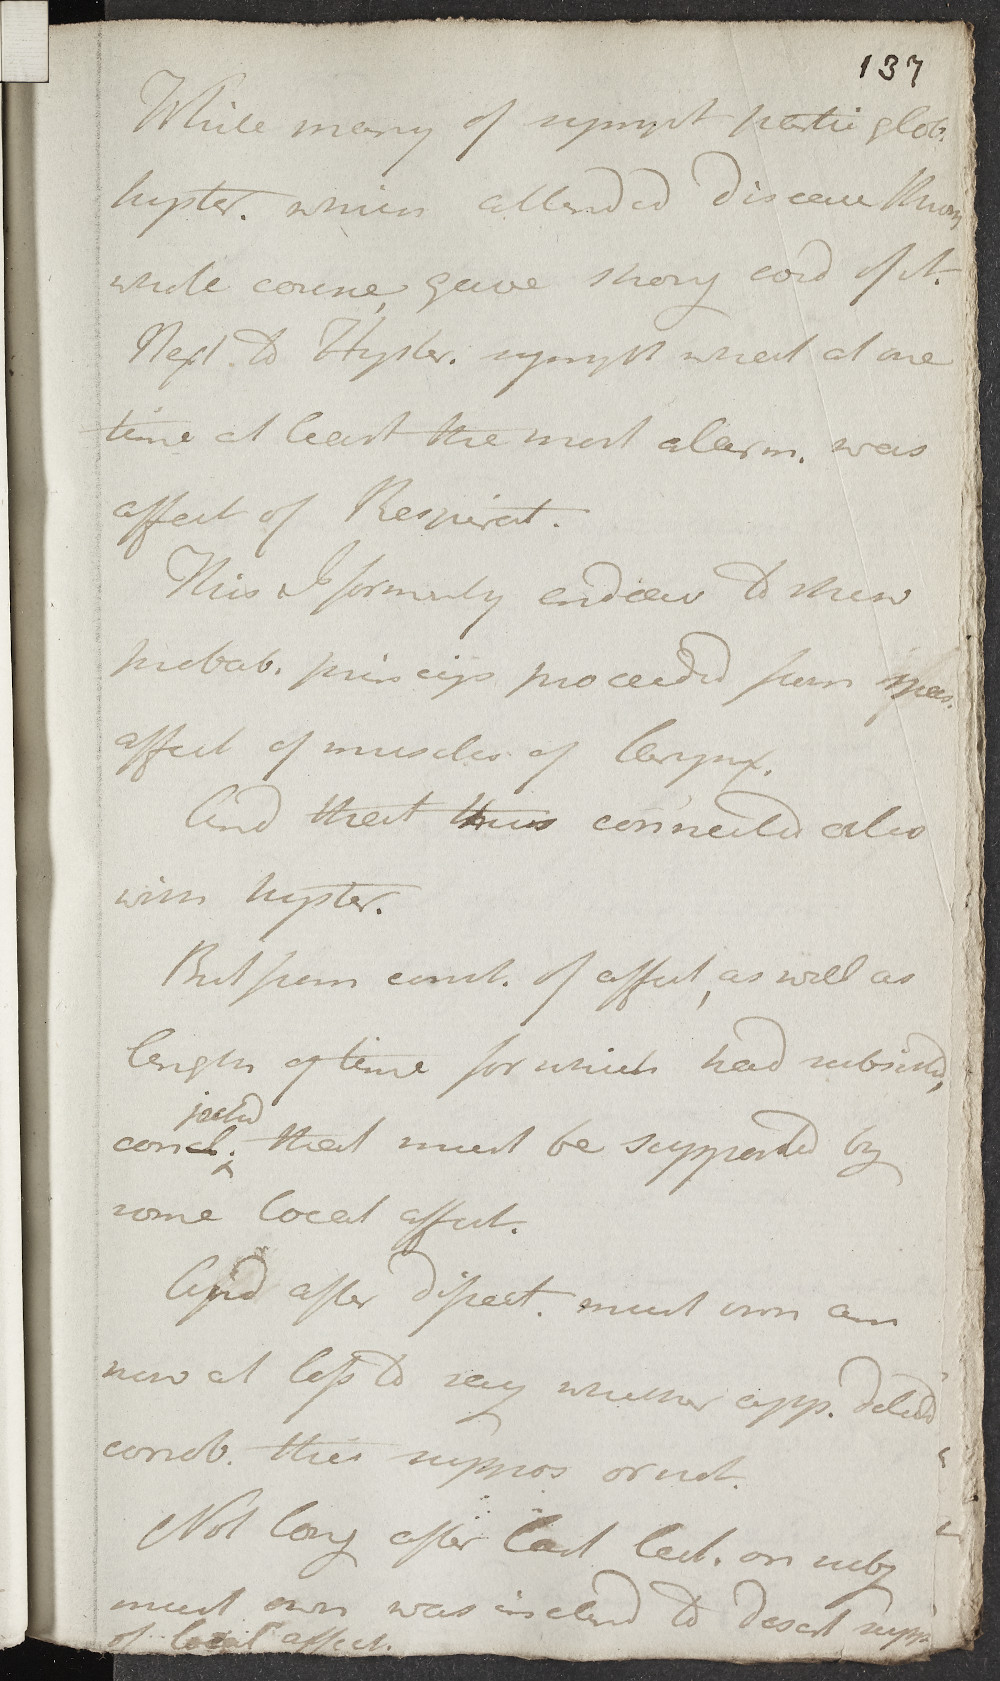 137
While many of sympt partic glob.
hyster. which attended disease thro
whole course, gave strong cord of it.
Next to Hyster. sympt what at one
time at least the most alarm. was
affect of Respirat.
This I formerly endeav to shew
probab. princip proceeded from spas.
affect of muscles of larynx.
And that thus connected also
with hyster.
But from const. of affect, as well as
length of time for which had subsisted,
jectd
con that must be supported by
some local affect.
And after dissect. must own am
now at loss to say whether app. detectd
corrob. this suppos or not.
Not long after last lect. on subj
must own was inclind to desert supp
of local affect.